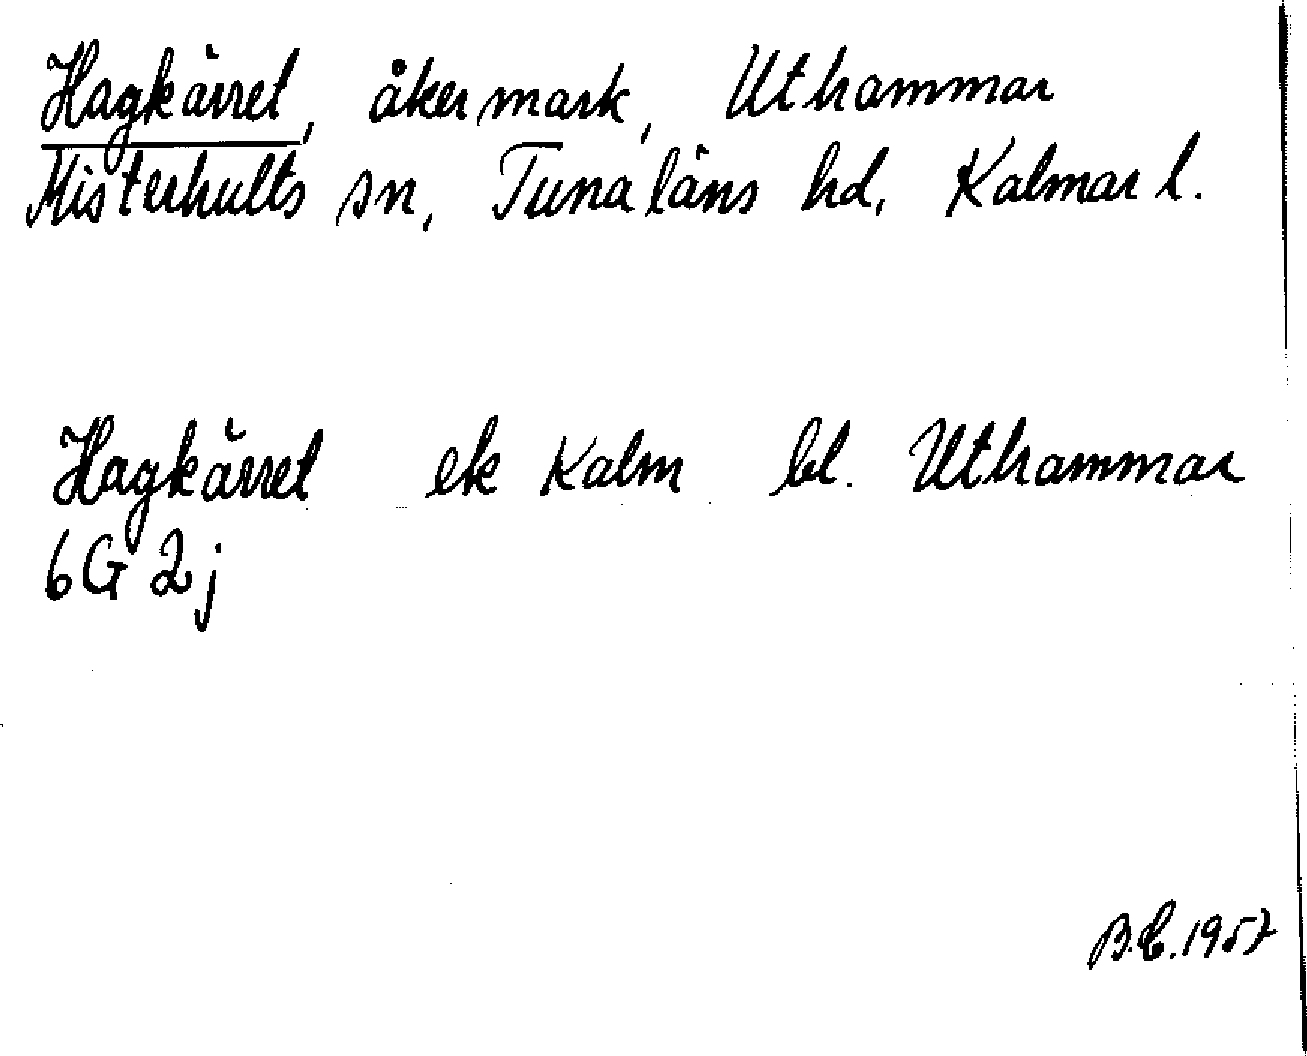 Hagkärret, åkermark, Uthammar
Misterhults sn, Tunaläns hd, Kalmar l.
Hagkärret ek Kalm bl. Uthammar
6G 2j
B.C. 1957